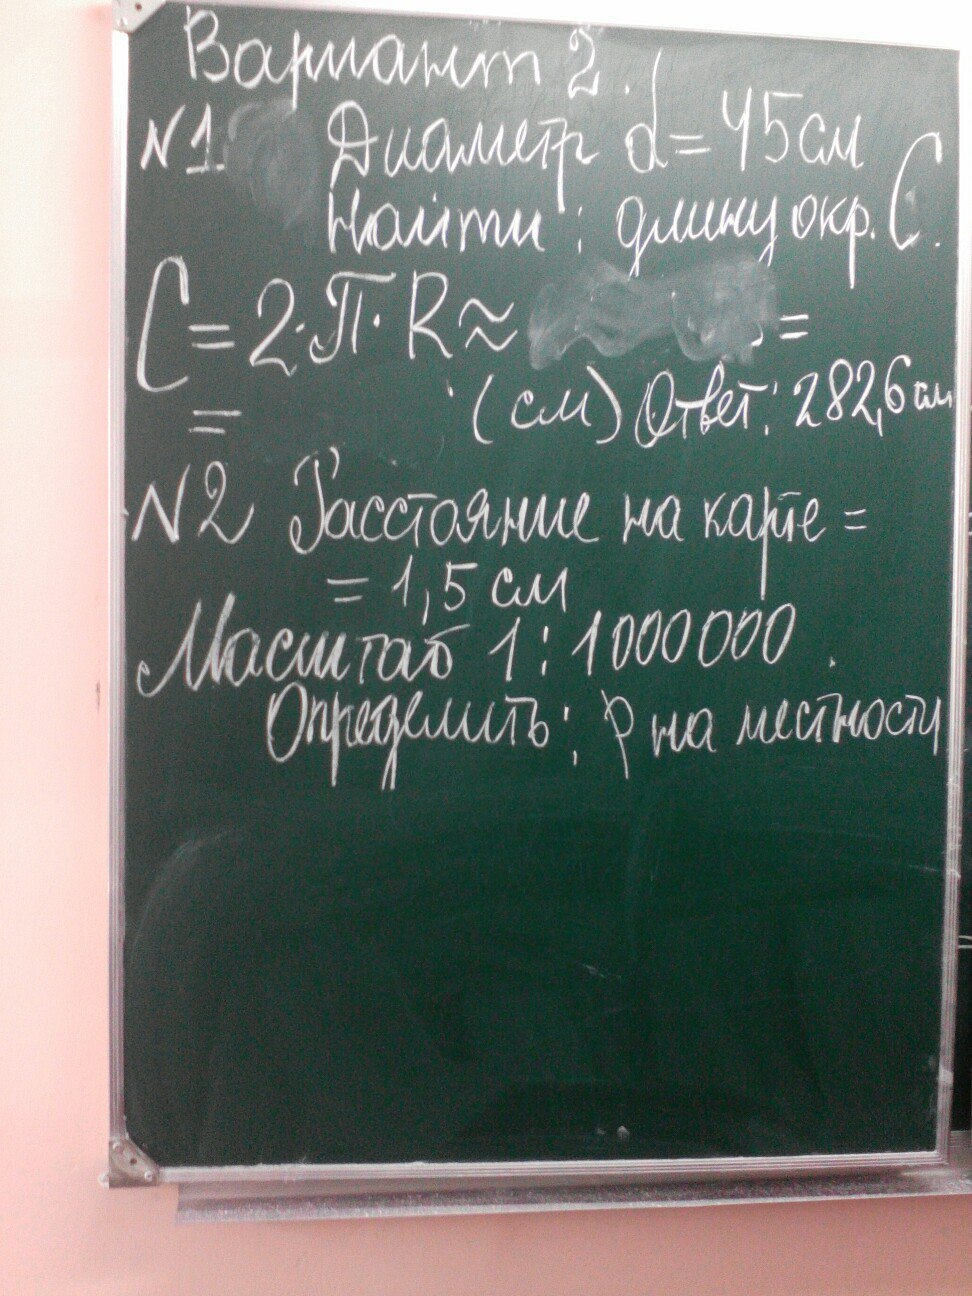 Вариант 2.
№1 Диаметр d = 45 см
Найти: длину окр. C.
C = 2·П·R ≈ =
= (см) Ответ: 282,6 см
№2 Расстояние на карте =
= 1,5 см
Масштаб 1:1000000.
Определить: р на местности